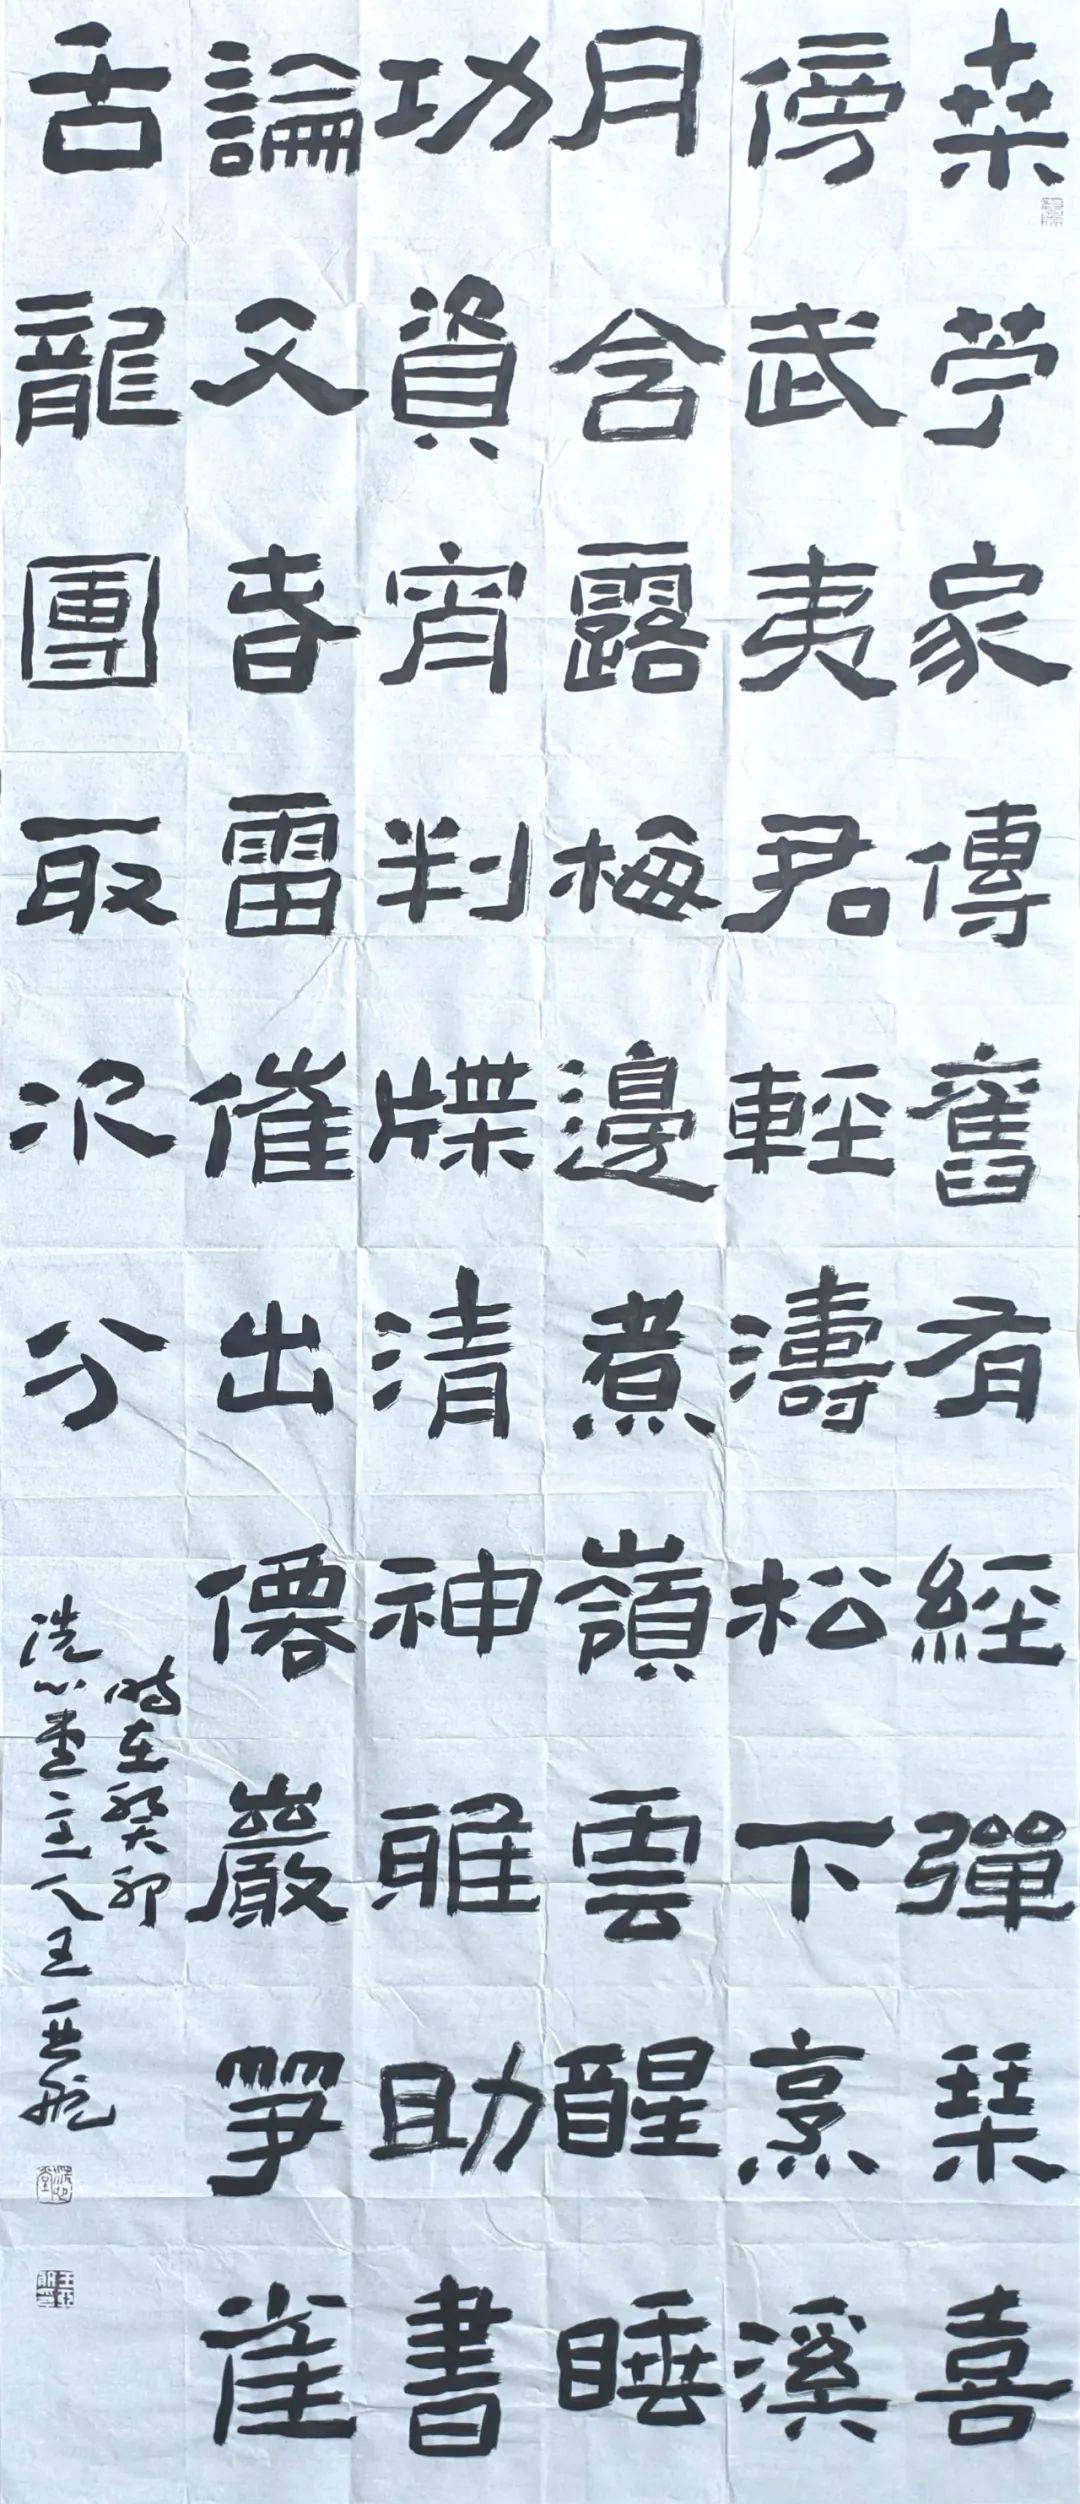 桒苧家傳舊有經彈琹喜
傍武夷君輕濤松下烹溪
月含露梅邊煮嶺雲醒睡
功資宵判牒清神雅助書
論文春雷催出僊巖笋雀
舌龍團取次分
時在癸卯
洗心堂主人王亞